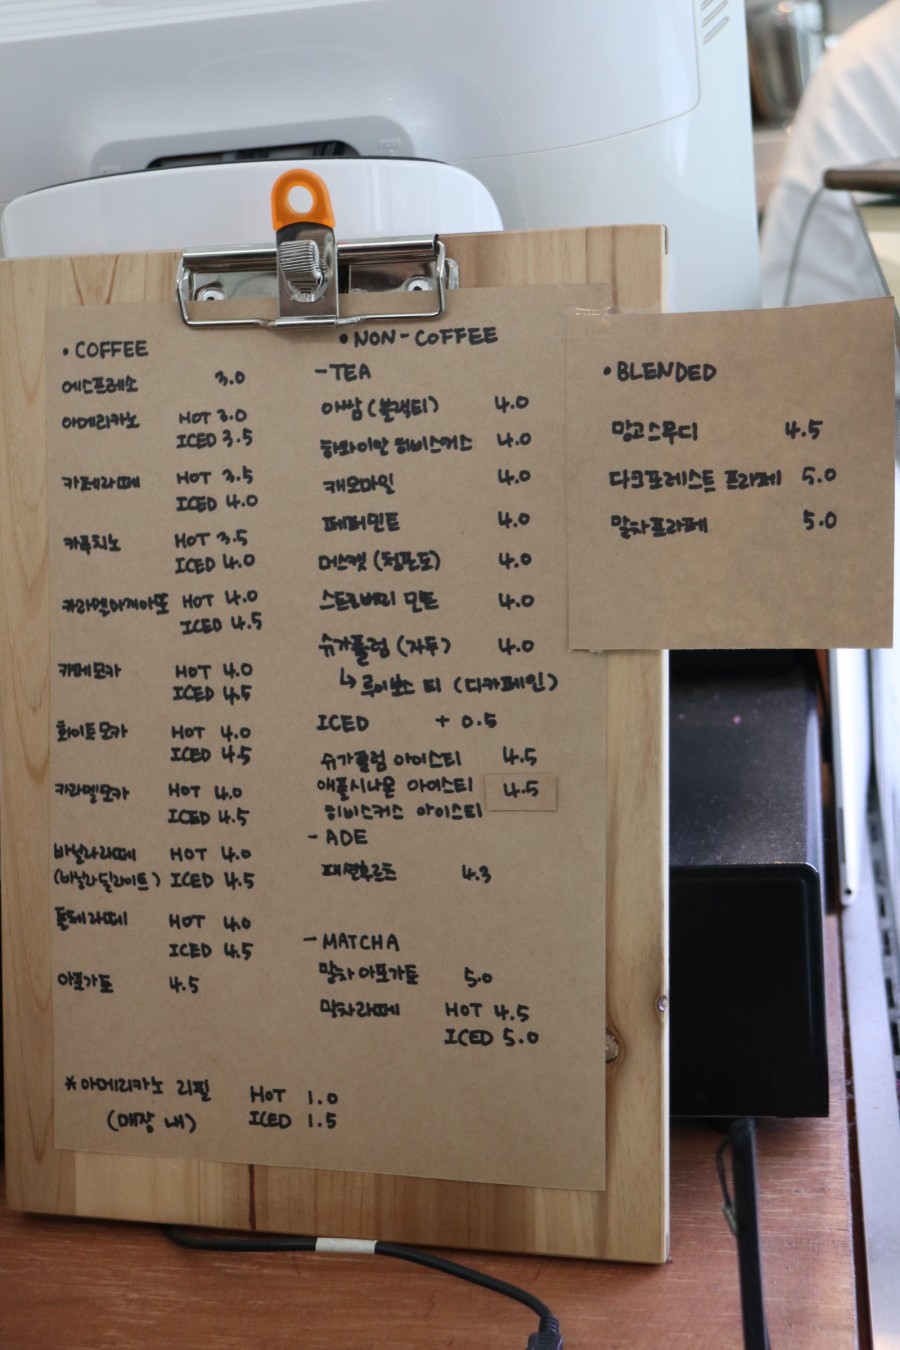 • COFFEE
에스프레소 3.0
아메리카노 HOT 3.0
ICED 3.5
카페라떼 HOT 3.5
ICED 4.0
카푸치노 HOT 3.5
ICED 4.0
카라멜마끼아또 HOT 4.0
ICED 4.5
카페모카 HOT 4.0
ICED 4.5
화이트모카 HOT 4.0
ICED 4.5
카라멜모카 HOT 4.0
ICED 4.5
바닐라라떼 HOT 4.0
(바닐라딜라이트) ICED 4.5
돌체라떼 HOT 4.0
ICED 4.5
아포가토 4.5
* 아메리카노 리필 HOT 1.0
(매장 내) ICED 1.5
• NON-COFFEE
- TEA
아쌈 (블랙티) 4.0
하와이안 히비스커스 4.0
캐모마일 4.0
페퍼민트 4.0
머스캣 (청포도) 4.0
스트로베리 민트 4.0
슈가플럼 (자두) 4.0
↳ 루이보스 티 (디카페인)
ICED + 0.5
슈가플럼 아이스티 4.5
애플시나몬 아이스티 4.5
히비스커스 아이스티
- ADE
패션후르츠 4.3
- MATCHA
말차아포가토 5.0
말차라떼 HOT 4.5
ICED 5.0
• BLENDED
망고스무디 4.5
다크포레스트 프라페 5.0
말차프라페 5.0